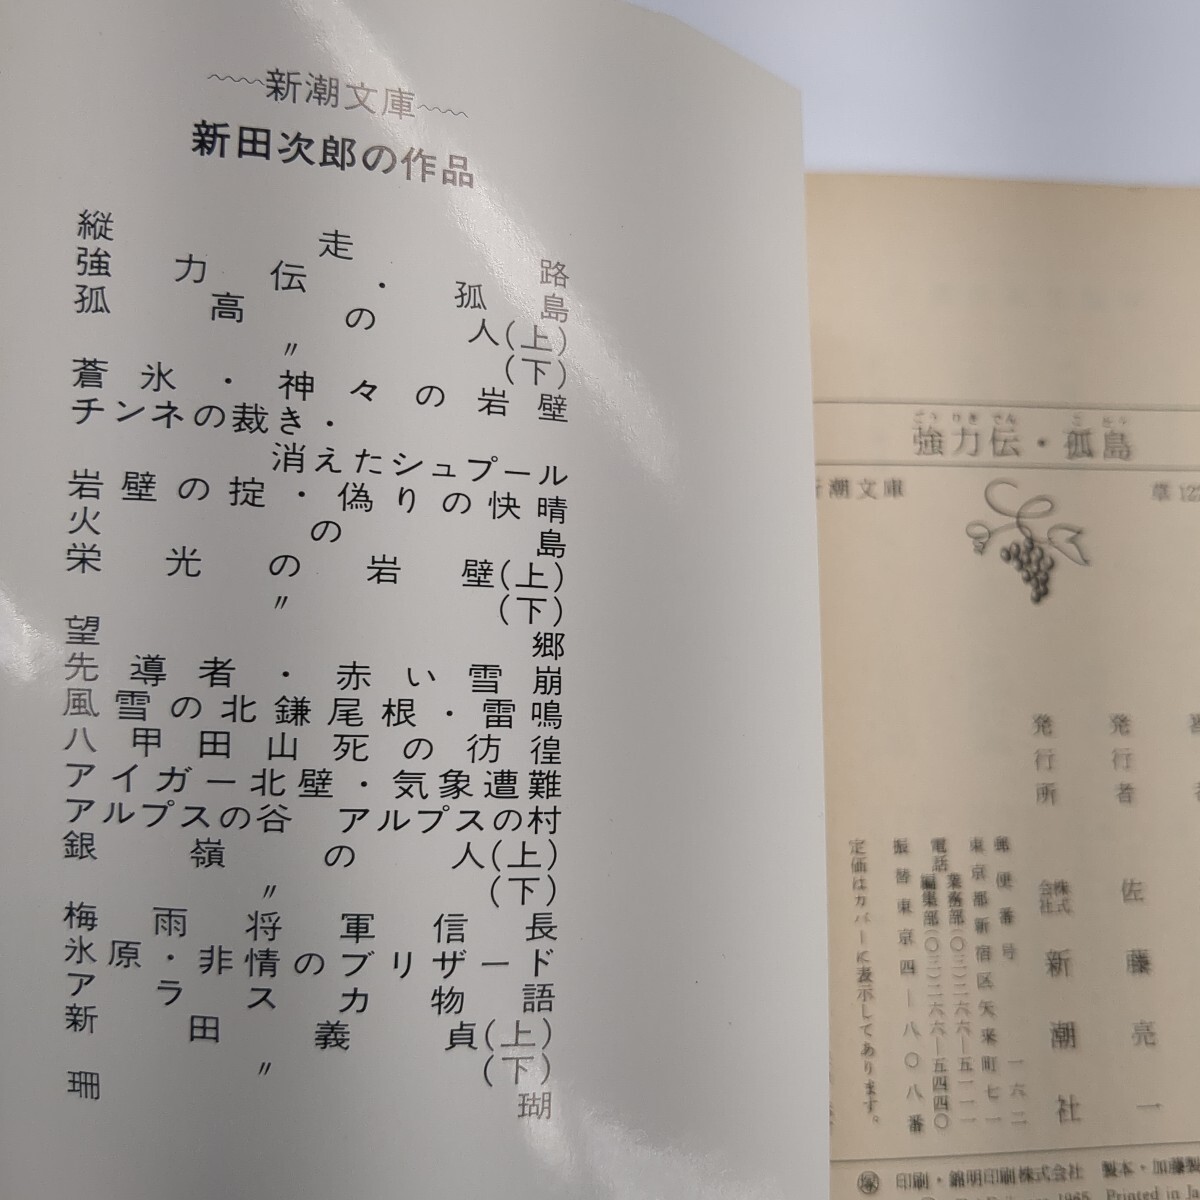 新潮文庫
新田次郎の作品
縦走路
強力伝・孤島
孤高の人(上)
〃(下)
蒼氷・神々の岩壁
チンネの裁き・
消えたシュプール
岩壁の掟・偽りの快晴
火の島
栄光の岩壁(上)
〃(下)
望郷
先導者・赤い雪崩
風雪の北鎌尾根・雷鳴
八甲田山死の彷徨
アイガー北壁・気象遭難
アルプスの谷 アルプスの村
銀嶺の人(上)
〃(下)
梅雨将軍信長
氷原・非情のブリザード
アラスカ物語
新田義貞(上)
〃(下)
珊瑚
ごうりきでん ことう
強力伝・孤島
潮文庫
草122
発行者 佐藤亮一
発行所 株式会社 新潮社
郵便番号 一六二
東京都新宿区矢来町七一
電話 業務部(〇三)二六六―五一一一
編集部(〇三)二六六―五四四〇
振替東京四―八〇八番
定価はカバーに表示してあります。
印刷・錦明印刷株式会社 製本・加藤製
1965 Printed in Ja